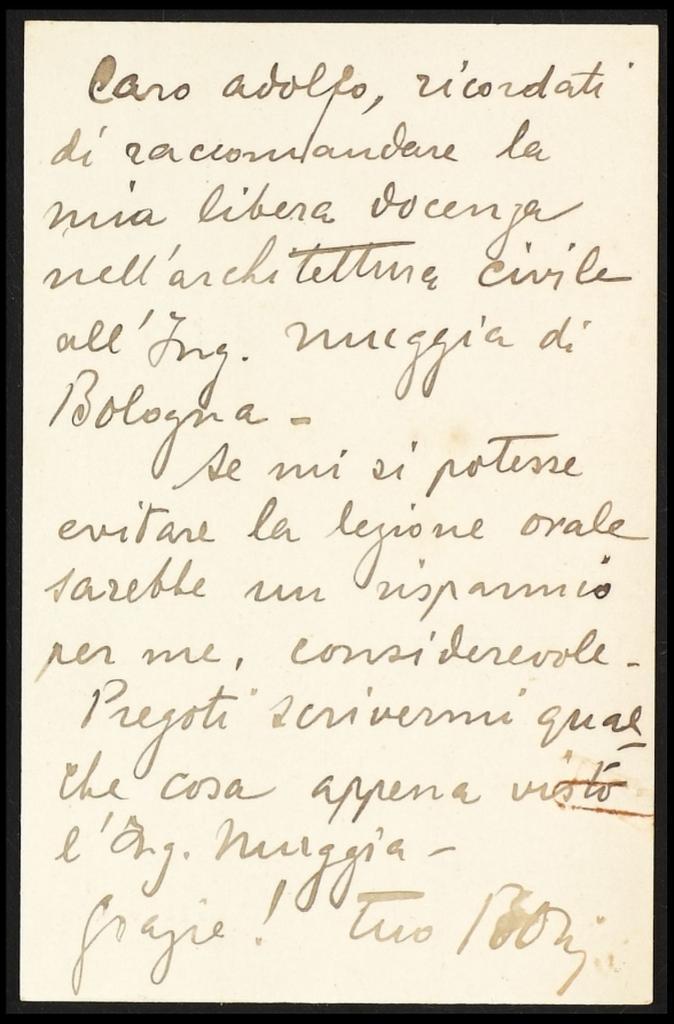 Caro Adolfo, ricordati
di raccomandare la
mia libera docenza
nell'architettura civile
all'Ing. Muggia di
Bologna -
Se mi si potesse
evitare la lezione orale
sarebbe un risparmio
per me, considerevole -
Pregoti scrivermi qual-
che cosa appena visto
l'Ing. Muggia -
grazie! tuo